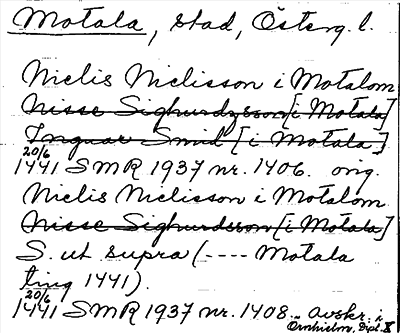 Motala, stad, Österg. l.
Nielis Nielisson i Motalom
Nisse Sighurdzsson [i Motala]
Inguar Smid [i Motala]
20/6
1441 SMR 1937 nr. 1406. orig.
Nielis Nielisson i Motalom
Nisse Sighurdsson [i Motala]
S. ut supra (---- Motala
ting 1441).
20/6
1441 SMR 1937 nr. 1408 avskr. i
Örnhielm, Dipl. X